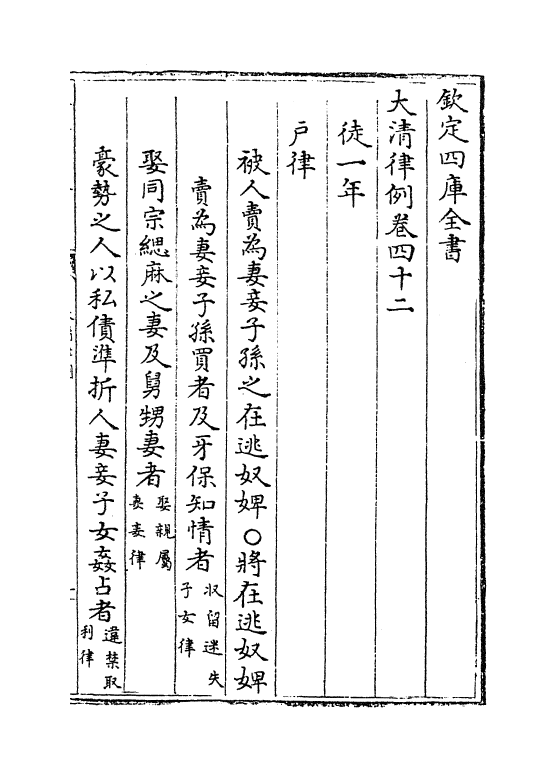 欽定四庫全書
大清律例卷四十二
徒一年
戶律
被人賣為妻妾子孫之在逃奴婢○將在逃奴婢
賣為妻妾子孫買者及牙保知情者收留迷失子女律
娶同宗緦麻之妻及舅甥妻者娶親屬妻妾律
豪勢之人以私債準折人妻妾子女姦占者違禁取利律